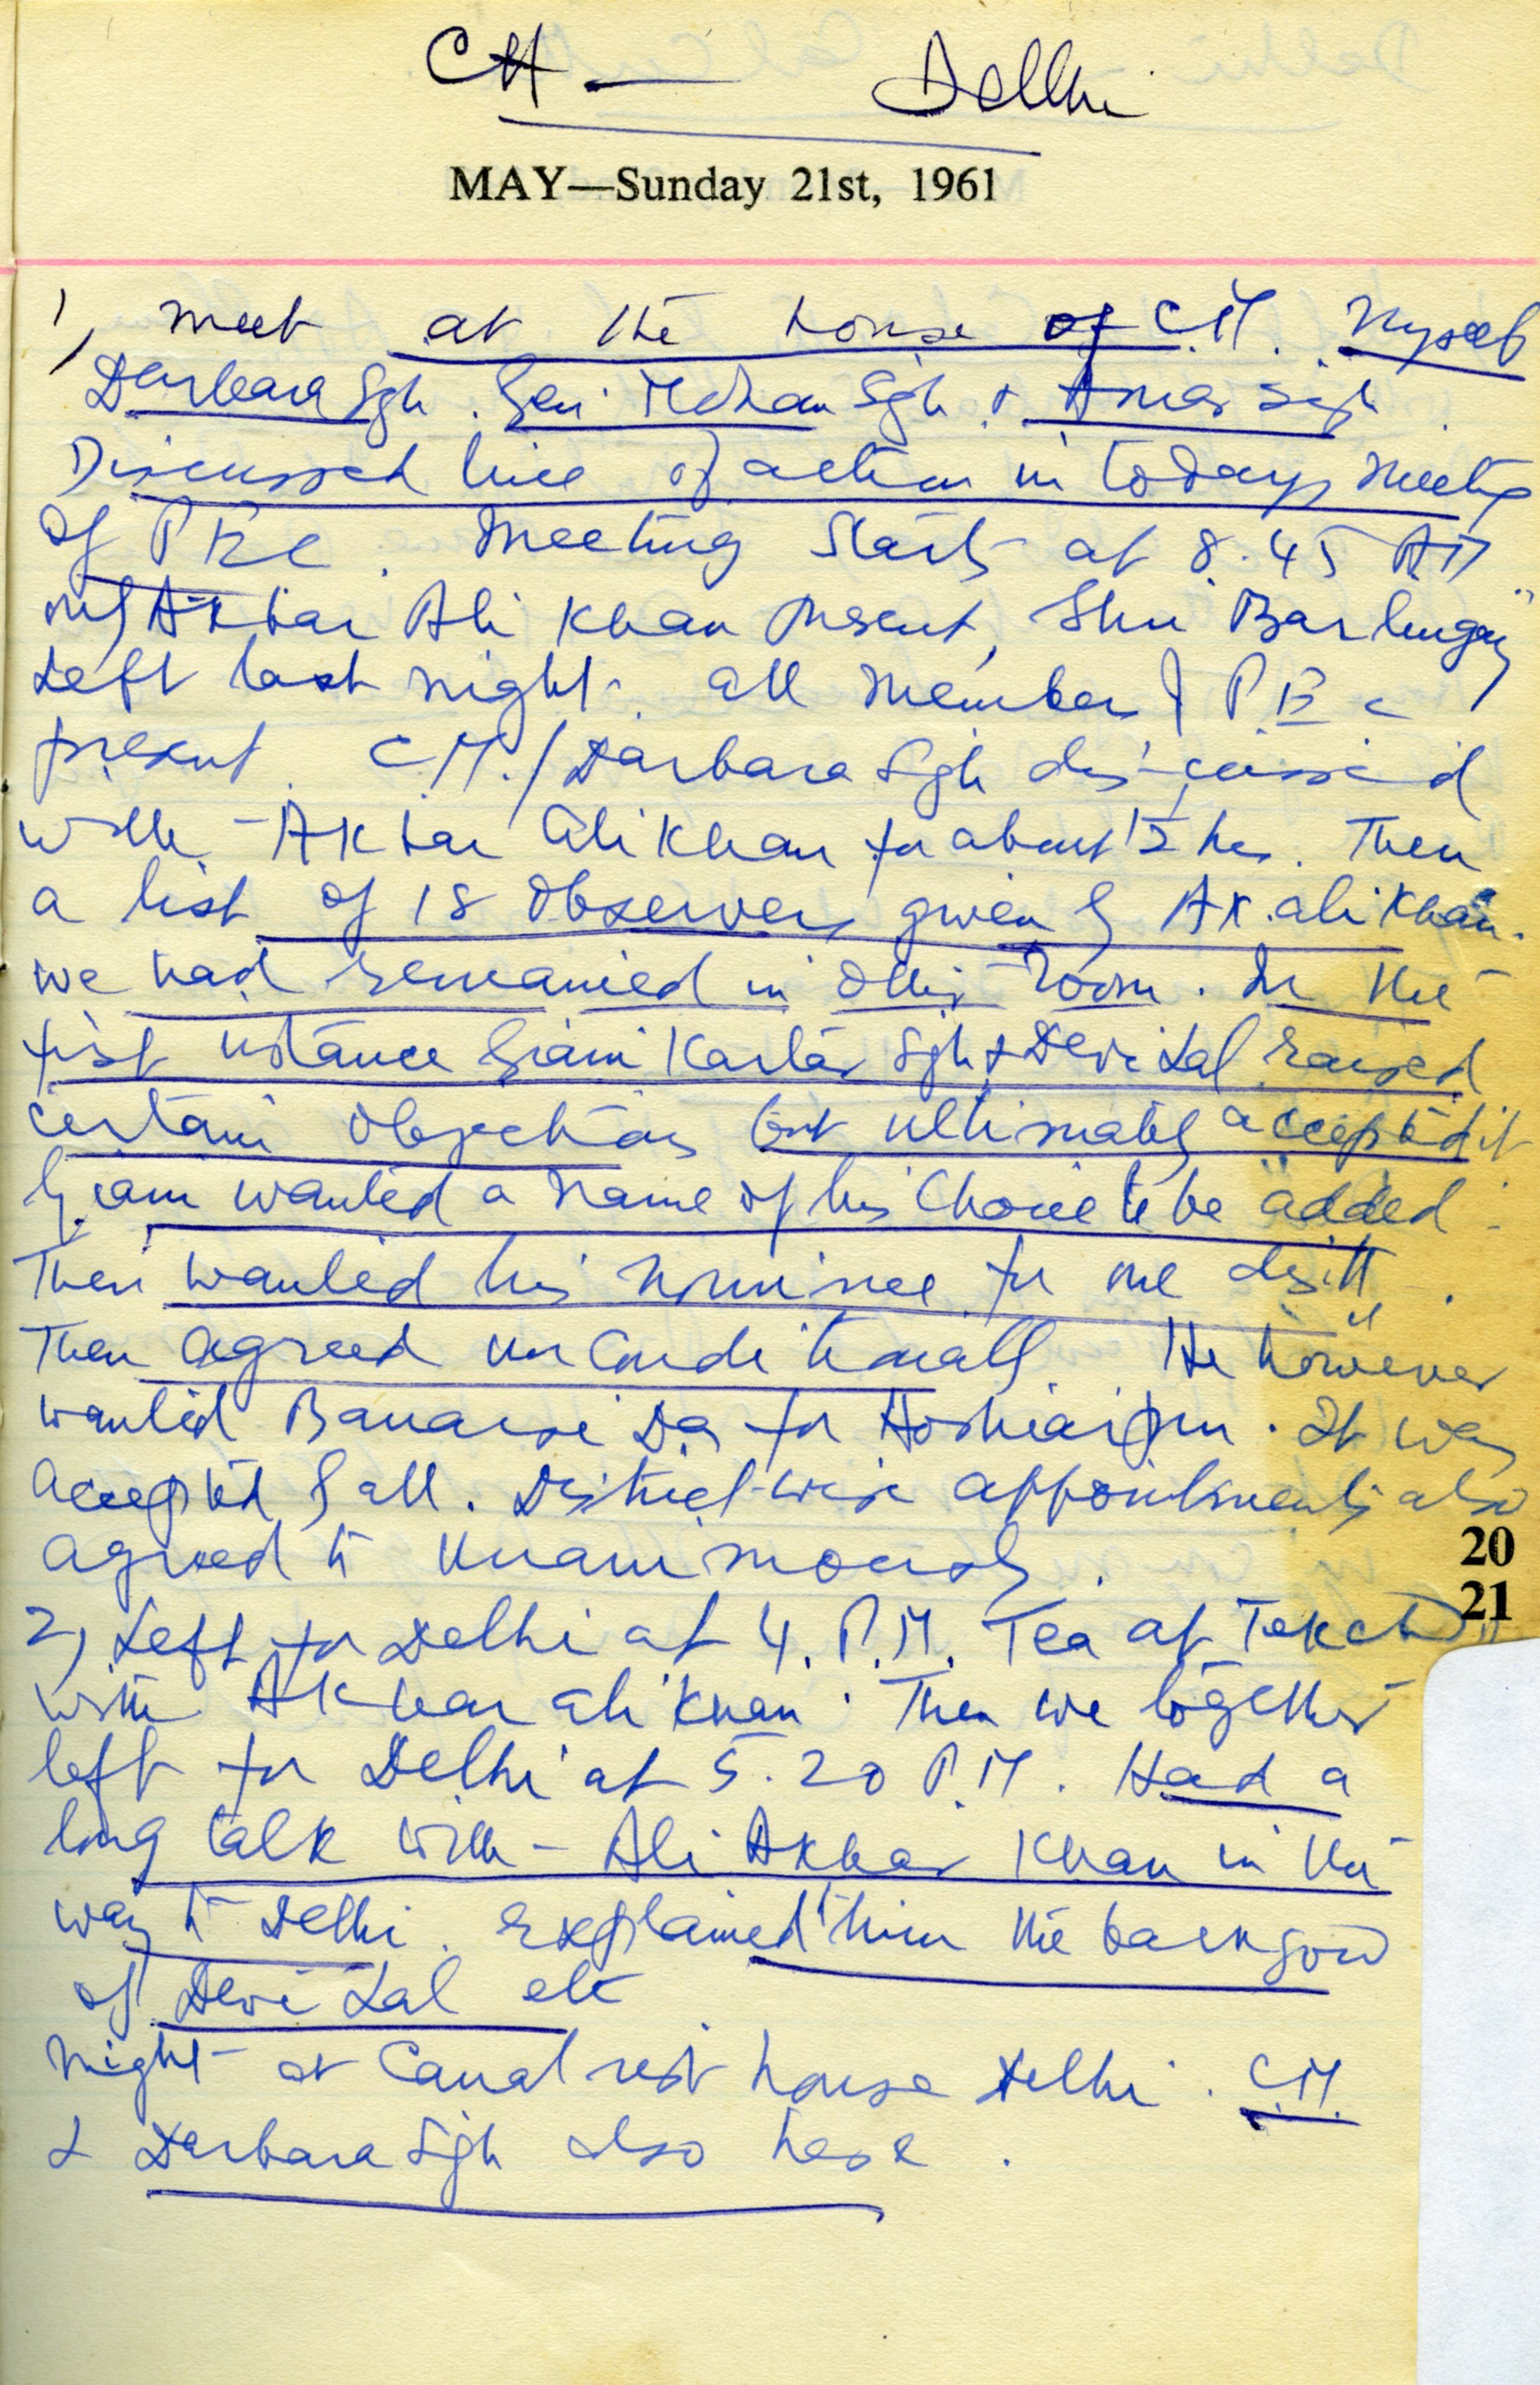 CH — Delhi
MAY—Sunday 21st, 1961
1, meet at the house of C.M. Myself
Darbara Sgh. Gen. Mohan Sgh & Amar Sigh
Discussed line of action in todays meeting
of PEC. Meeting starts at 8.45 AM
only Akbar Ali Khan present, Shri Barlingay
Left last night. all members of PEC
present. C.M./Darbara Sgh discussed
with Akbar Ali Khan for about 1/2 hr. Then
a list of 18 Observers given by Ak. ali Khan.
we had remained in other room. In the
first instance Giani Kartar Sgh & Devi Lal raised
certain objections but ultimately accepted it
Giani wanted a name of his Choice to be added.
Then wanted his nominee for one distt.
Then agreed unconditionally. He however
wanted Banarsi Das for Hoshiarpur. It was
accepted by all. District-wise appointments also
agreed to unanimously.
20
21
2, Left for Delhi at 4. P.M. Tea at
with Akbar ali Khan. Then we together
left for Delhi at 5.20 P.M. Had a
long talk with - Ali Akbar Khan in the
way to Delhi. explained him the
of Devi Lal etc
Night at Canal rest house Delhi. C.M.
& Darbara Sgh also here.